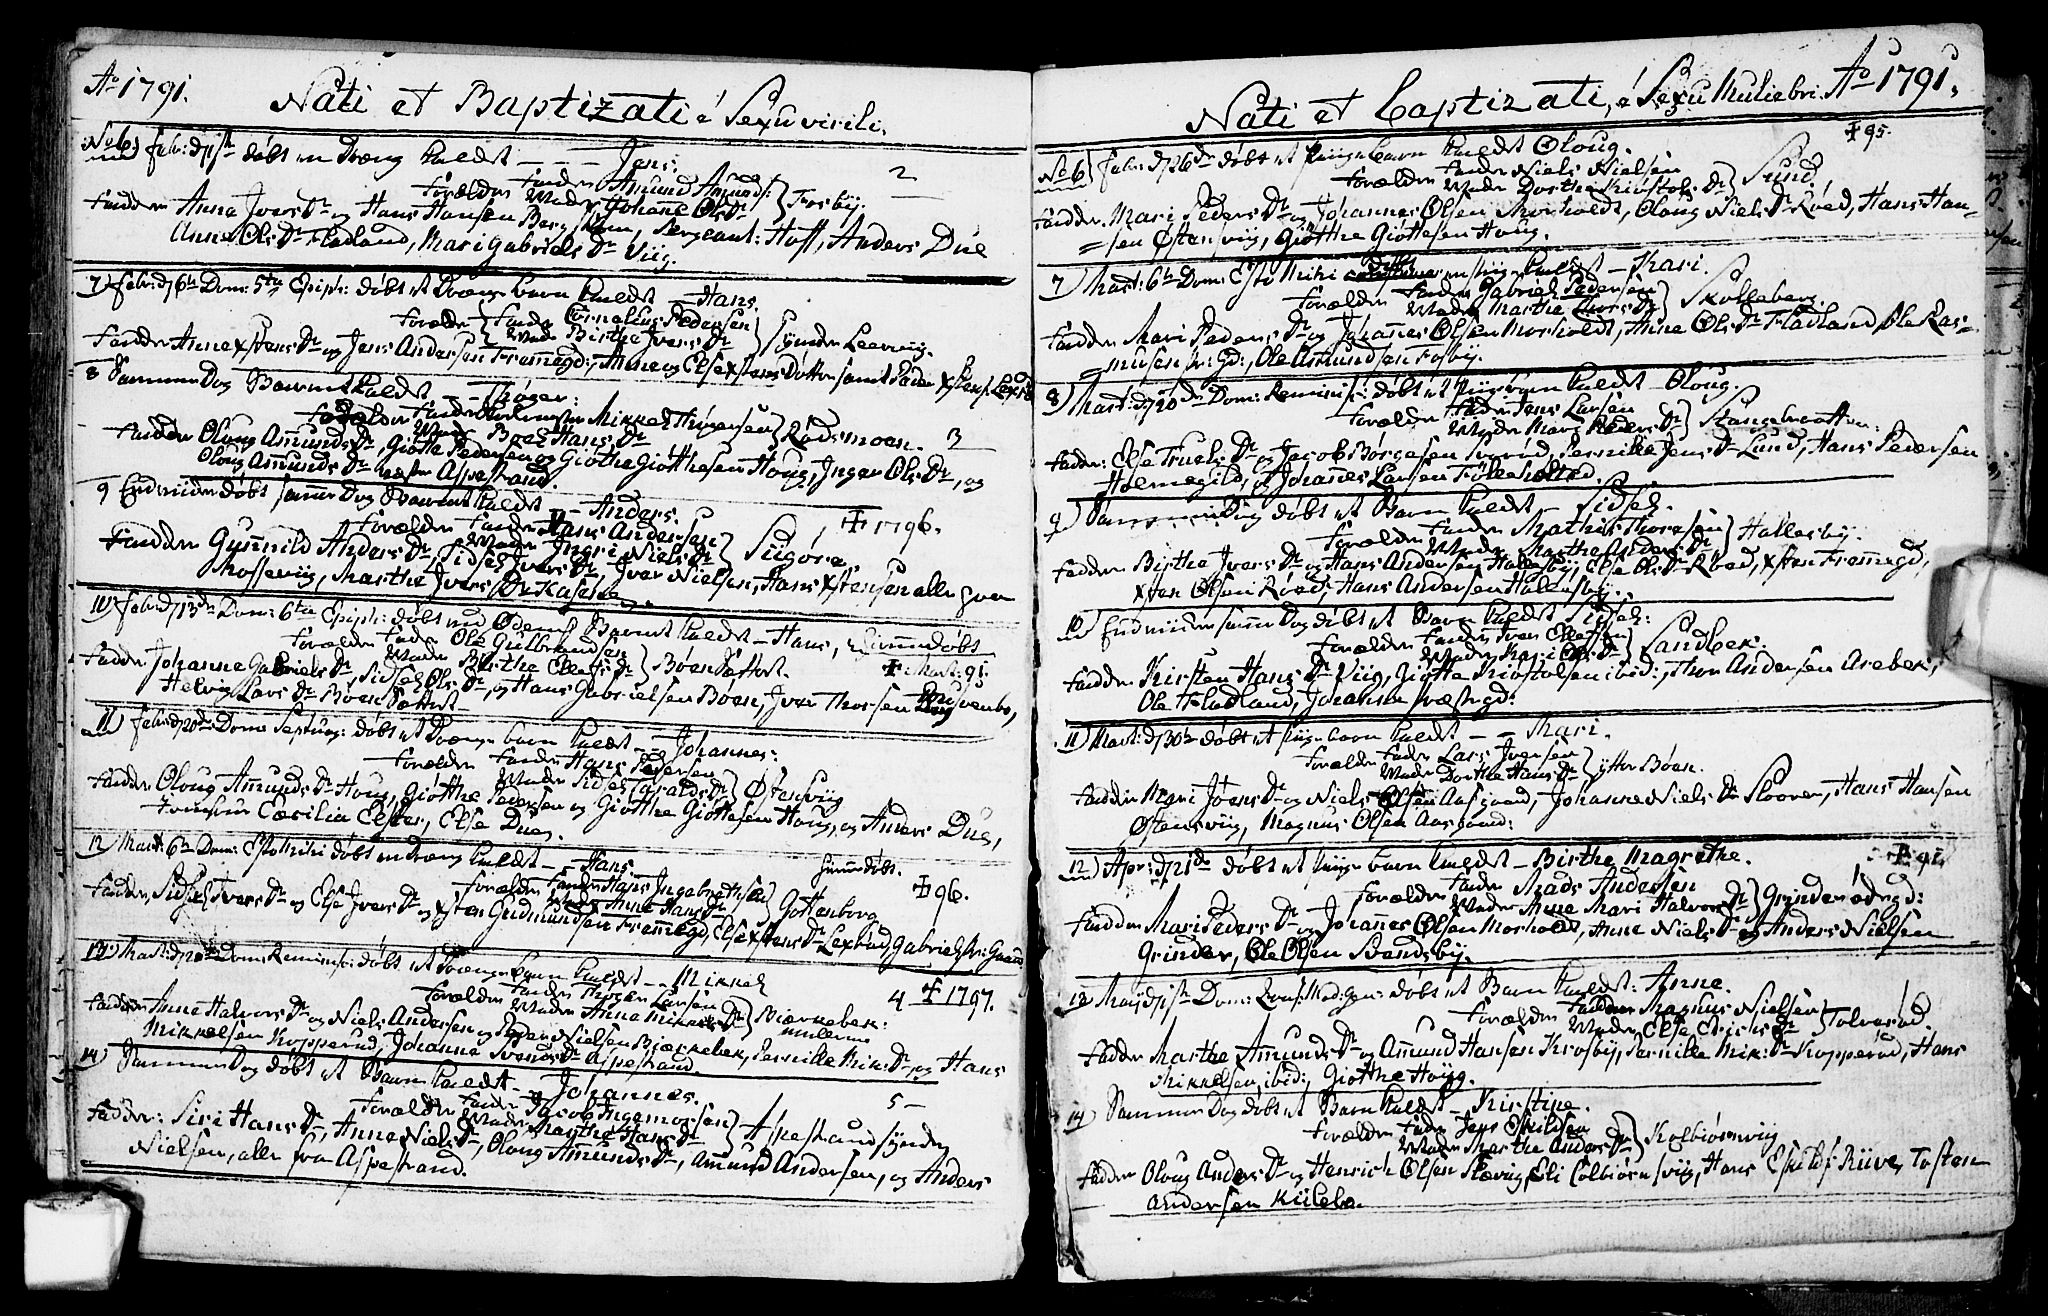 Aº 1791.
Nati et Baptizati é Sexu virili.
No 6) Febr: d 1ste döbt en Dreng kaldet - - - Jens.
Forældre Fader Amund Amunds: Moder Johanne Ols Dr } Fosbÿ. 2
Faddere Anna Jvers Dr og Hans Hansen Berg, Sergeant: Hoff, Anders Due
Anne Ols Dr Fladland, Mari Gabriels Dr Viig.
7) Febr: d 6te Dom: 5ta Epiph: döbt et Drenge barn kaldet - Hans.
Forældre { Fader Cornelius Pedersen Moder Birthe Jvers Dr } Leervig.
Fadder Anne xstens Dr og Jens Andersen Fremegd:, Anne og Else xstens Döttre samt Peder xstens:
8 Samme Dag Barnet kaldet - Thöger:
Forældre Fader Mikkel Thögersen Moder Boel Hans Dr } Rödsmoen. 3
Fadder Oloug Amunds Dr Giötte Pedersen og Giöthe Giöthesen Houg, Inger Ols Dr, og
Oloug Amunds Dr Aspestrand.
9 Endvidere döbt samme Dag Barnet kaldet - Anders.
Forældre Fader Hans Andersen Moder Ingri Niels Dr } ✝ 1796.
Fadder Gunnild Anders Dr, Sidsel Jvers Dr, Jver Nielsen, Hans xstensen alle fra
Mosseviig, Marthe Jvers Dr Kasene.
10) Febr: d 13de Dom: 6ta Epiph: döbt Barnet kaldet - Hans, hjemmedöbt
Forældre Fader Ole Gulbrandsen Moder Birthe Ellefs Dr } Böen Söttort. ✝ Mart: 95
Fadder Johanne Gabriels Dr, Sidsel Ols Dr, og Hans Gabrielsen Böen, Jver Thorsen
Helvig Lars Dr Böen
11) Febr: d 20de Dom: Septuag: döbt et Drenge barn kaldt - Johannes:
Forældre Fader Hans Pedersen Moder Sidsel Haralds Dr } Östensviig
Fadder Oloug Amunds Dr Houg, Giöthe Pedersen og Giöthe Giöttesen Houg, og Anders Due,
Cæcilia Elster, Else Dues.
12) Mart: 6te Dom: Esto Mihi döbt en Dreng kaldet - Hans. hjemmedöbt.
Forældre Fader Hans Ingebrethsen Moder Anne Hans Dr } Gottenborg ✝ 96.
Fadder, Sidsel Jvers Dr og Else Jvers Dr og xsten Gudmundsen Fremegd, Else xstens Dr Lexrud, Gabriel
13) Mart: d 20de Dom: Reminisc: döbt et Drenge barn kaldet - Mikkel
Forældre Fader Thoger Larsen Moder Anna Mikkels Dr } Biærkebek: 4 ✝ 1797.
Fadder Anne Halvors Dr og Niels Andersen og Peder Nielsen Biærkebek, Pernille Mik: Dr, og Hans
Mikkelsen Kopperud, Johanna Svends Dr Aspestrand.
14) Samme Dag döbt et Barn kaldet - Johannes.
Forældre Fader Jacob Ingemorsen Moder Marthe Hans Dr } Aspestrand söndre 5 -
Fadder: Siri Hans Dr, Anne Niels Dr, Oloug Amunds Dr, Amund Andersen, og Anders
Nielsen, alle fra Aspestrand.
Nati et Baptizati, é Sexu Muliebri. Aº 1791.
No 6) Febr: d 26de döbt et Piigebarn kaldet Oloug. ✝ 95.
Forældre Fader Niels Nielsen Moder Dorthe Kiöstols Dr } Sund,
Fadder. Mari Peders Dr og Johannes Olsen Morholdt, Oloug Niels Dr Röed, Hans Han=
=sen Östensviig, Giötthe Giöttesen Houg.
7) Mart: 6te Dom: Esto Mihi kaldet - Kari.
Forældre Fader Gabriel Pedersen Moder Marthe Thors Dr } Skolleberg.
Fadder Mari Peders Dr og Johannes Olsen Morholdt, Anne Ols Dr Fladland, Ole Ras=
=musen Pr: Gd:, Ole Amundsen Fosbÿ.
8) Mart: d 20de Dom: Reminisc: döbt et Piigebarn kaldet - Oloug.
Forældre Fader Jens Larsen Moder Mari Peders Dr } Stangebraatten:
Fadder: Else Truels Dr og Jacob Börgesen Soröd, Pernille Jens Dr Lund, Hans Pedersen
Holmegild, og Johannes Larsen Fölleholted.
9) Samme Dag döbt et Barn kaldet - Sidsel.
Forældre Fader Mathis Thoresen Moder Marthe Peders Dr } Hallesbÿ.
Fadder Birthe Jvers Dr og Hans Andersen Hallesbÿ, Else Ols Dr Röed, xsten Fremegd,
xsten Olsen Röed, Hans Andersen Hallesbÿ.
10) Endvidere samme Dag döbt et Barn kaldet Sidsel:
Forældre Fader Sven Ellefsen Moder Kari Ols Dr } Sandbek.
Fadder Kirsten Hans Dr Viig, Giötte Kiöstolsen ibid:, Thor Andersen Arebek,
Ole Fladland, Johanna Præstegd:
11) Mart: d 30te döbt et Pige barn kaldet - - Mari.
Forældre Fader Lars Jversen Moder Dorthe Hans Dr } ytter Böen.
Fadder Mari Jöens Dr og Niels Olsen Aasgaard, Johanne Niels Dr Slooren, Hans Hansen
Östensviig, Magnus Olsen Aasgaard:
12) Apr: d 21de döbt et Piige barn kaldet - Birthe Magrethe. ✝ 95
Forældre Fader Mads Andersen Moder Anne Mari Halvors Dr } Grinder ödegd:
Fadder Mari Peders Dr og Johannes Olsen Morholdt, Anne Niels Dr og Anders Nielsen
Grinder, Ole Olsen Svendsbÿ.
13 Maÿ d 1ste Dom: Qvasimodogen: döbt et Barn kaldet: Anne.
Forældre Fader Magnus Nielsen Moder Else Erichs Dr } Tolverød. 16
Fadder Marthe Amunds Dr og Amund Hansen Krosbÿ, Pernille Mik: Dr Kopperöd, Hans
Mikkelsen, ibid:, Giötthe Houg.
14) Samme Dag döbt et Barn kaldet - Kirstine.
Forældre Fader Jens Eskildsen Moder Marthe Anders Dr } Kolbiörnviig
Fadder Oloug Anders Dr og Henrich Olsen Slevig, Eli Colbiörnsviig, Hans Eskilds: Riive, Tosten
Andersen Kiilebo.